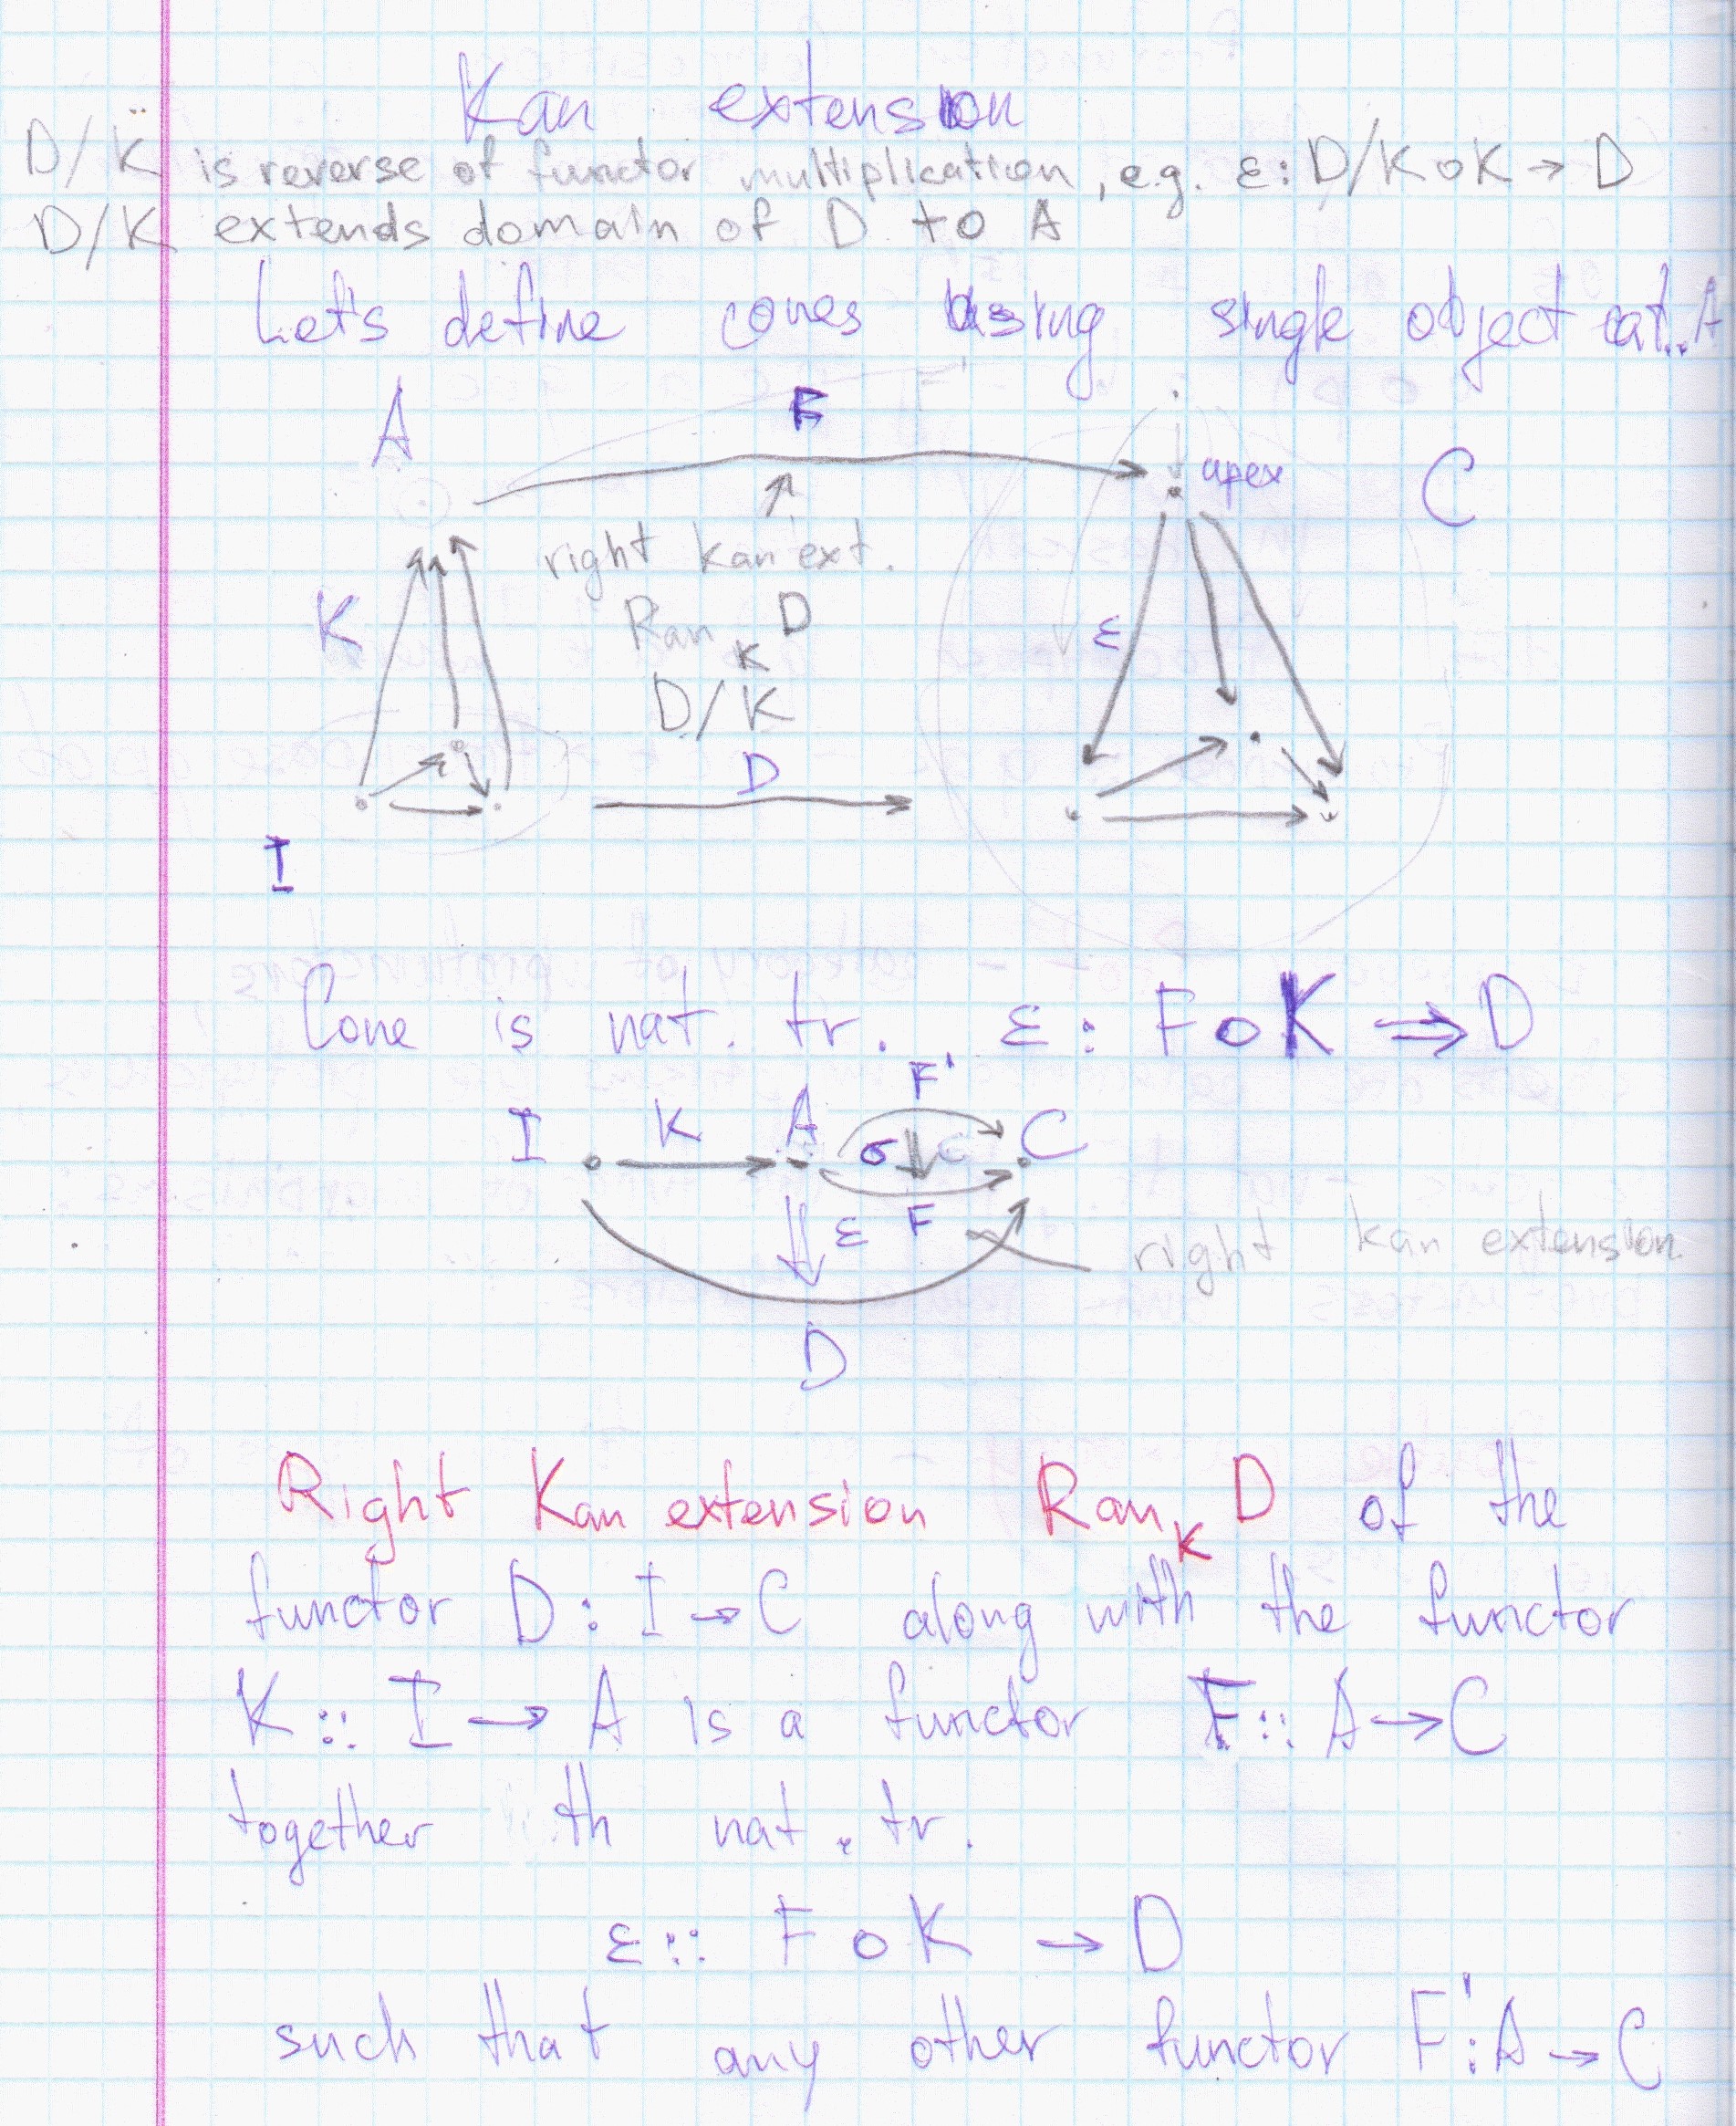 Kan extension
D/K is reverse of functor multiplication, e.g. ε: D/K∘K → D
D/K extends domain of D to A
Let's define cones using single object cat. A
A
F
apex
C
right kan ext.
K
Ran_K D
ε
D/K
D
I
Cone is nat. tr. ε : F∘K ⇒ D
F'
I K A σ C
ε F
right kan extension
D
Right Kan extension Ran_K D of the
functor D : I → C along with the functor
K :: I → A is a functor F :: A → C
together th nat. tr.
ε :: F ∘ K → D
such that any other functor F' : A → C